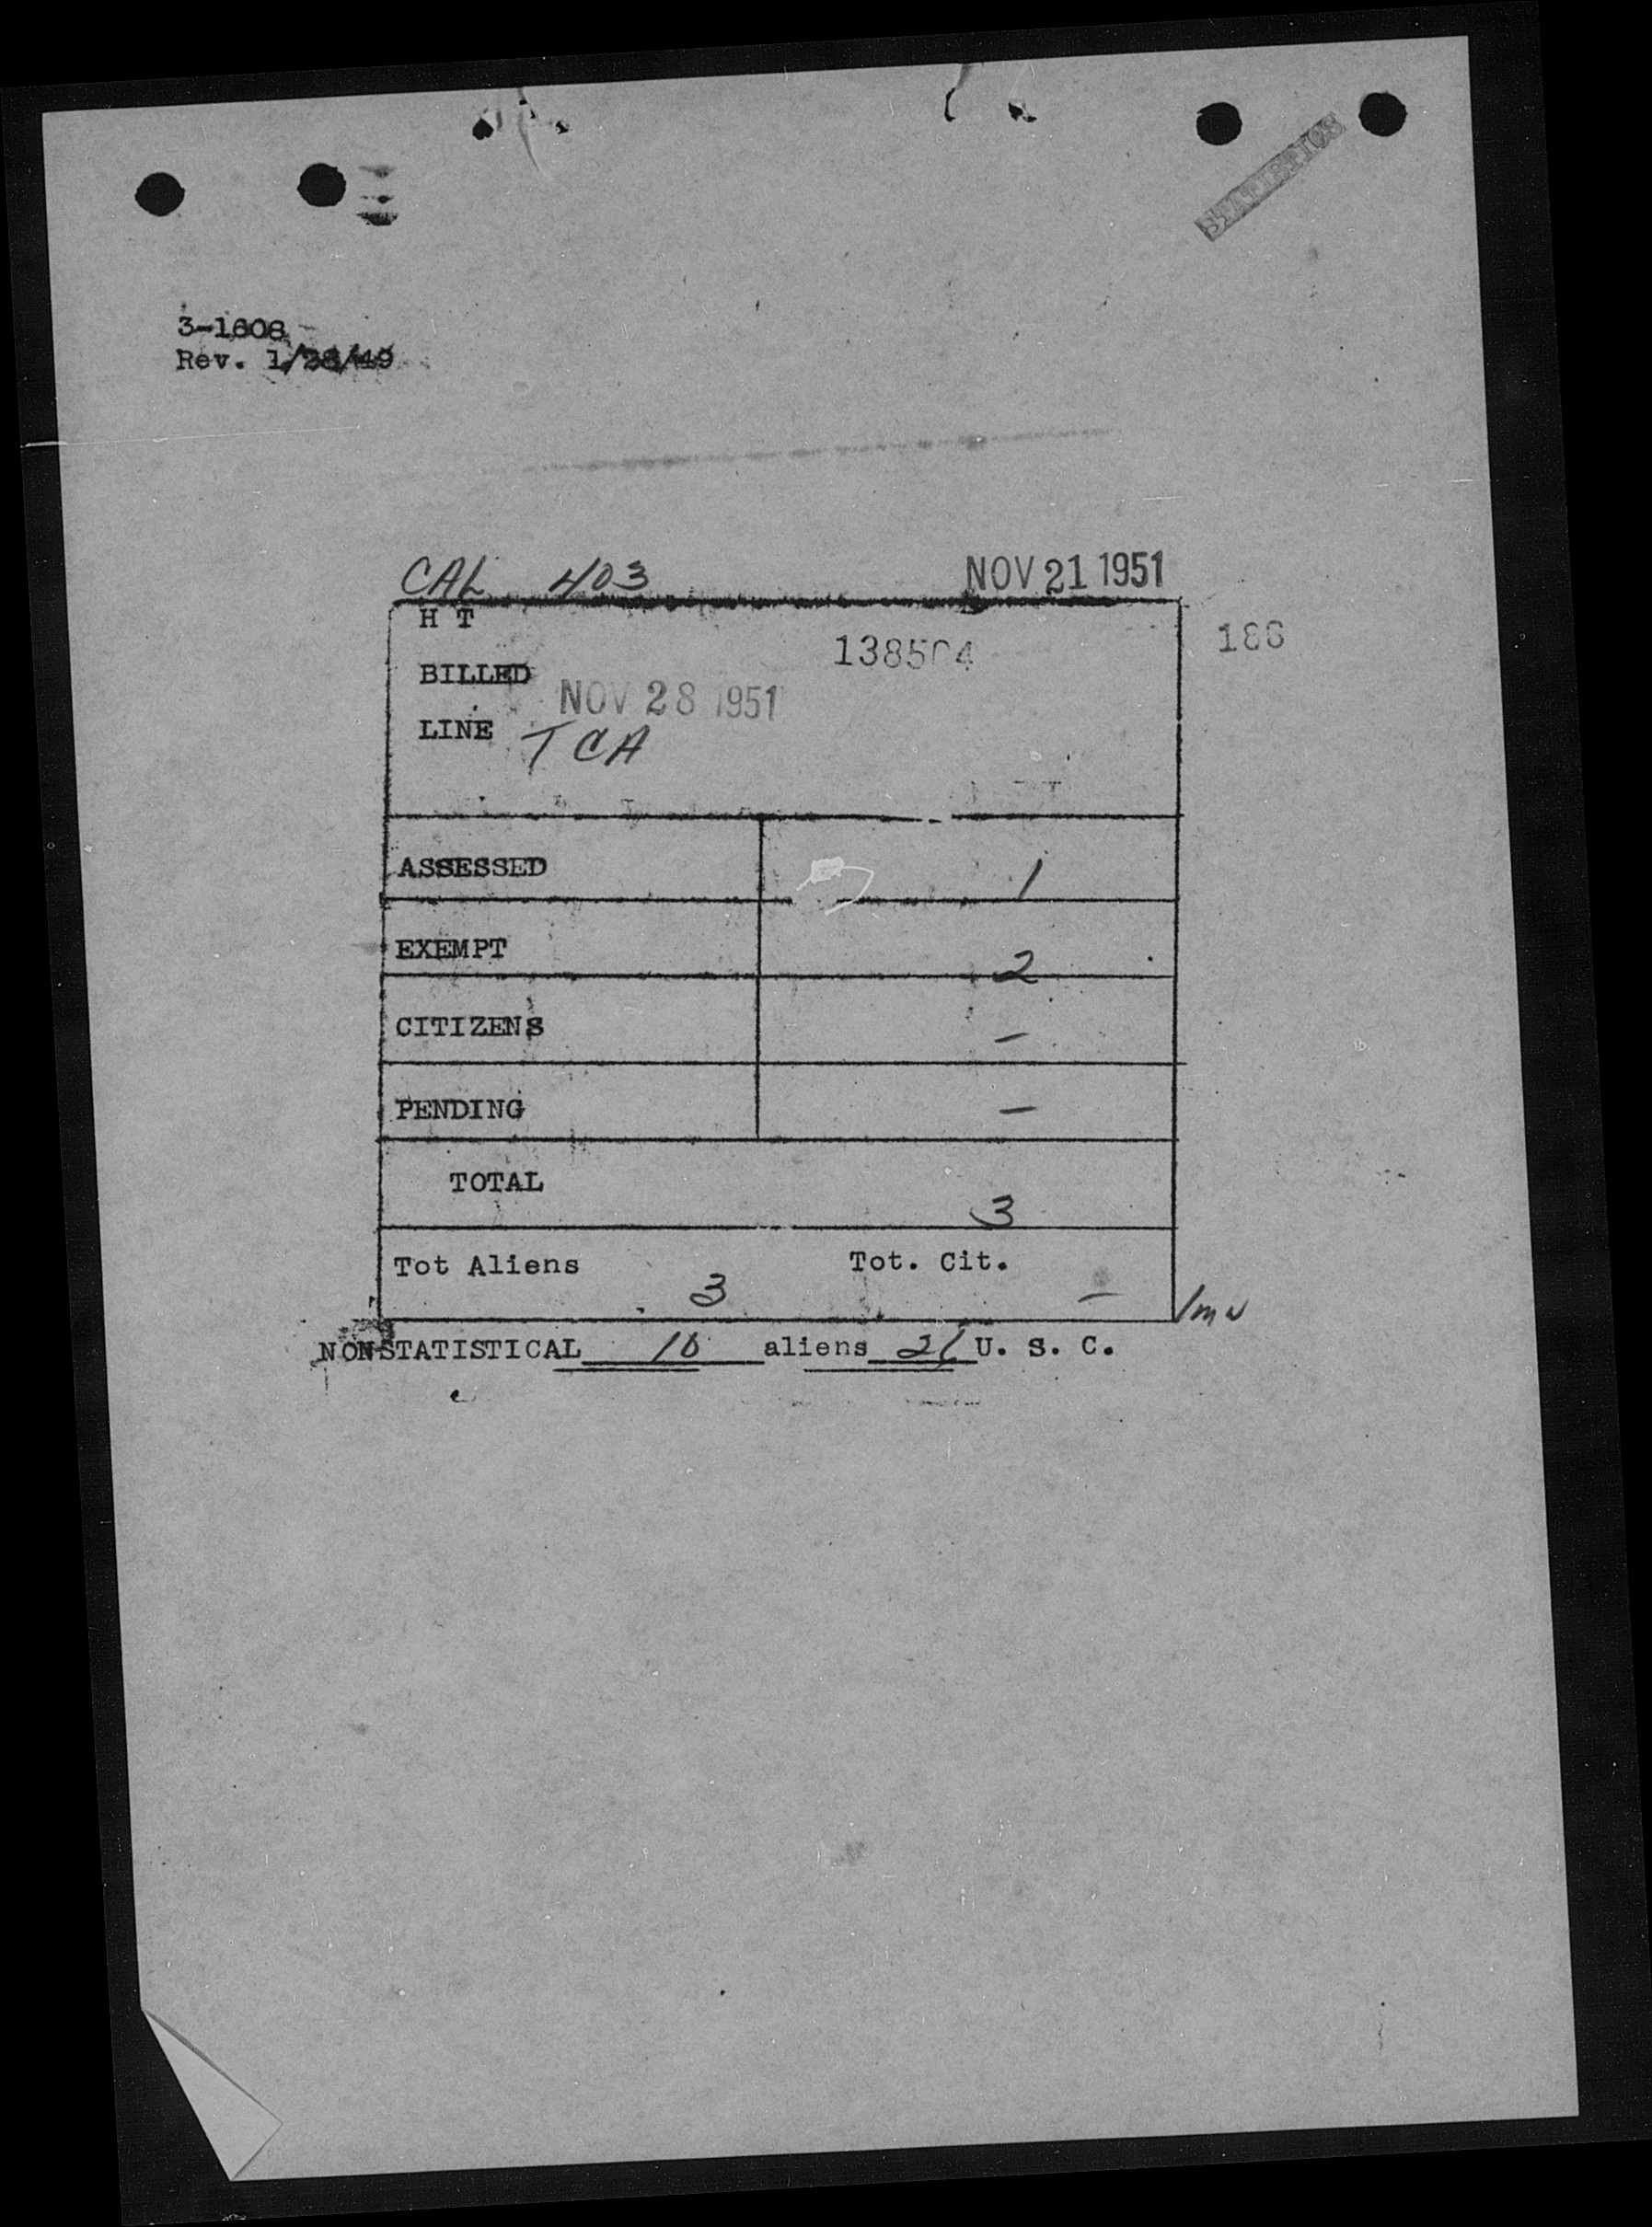 STATISTICS
3-1608
Rev. 1/28/49
CAL 403 NOV 21 1951
H T
138504 186
BILLED NOV 28 1951
LINE TCA
ASSESSED 1
EXEMPT 2
CITIZENS –
PENDING –
TOTAL 3
Tot Aliens 3 Tot. Cit. –
NONSTATISTICAL 10 aliens 21 U. S. C.